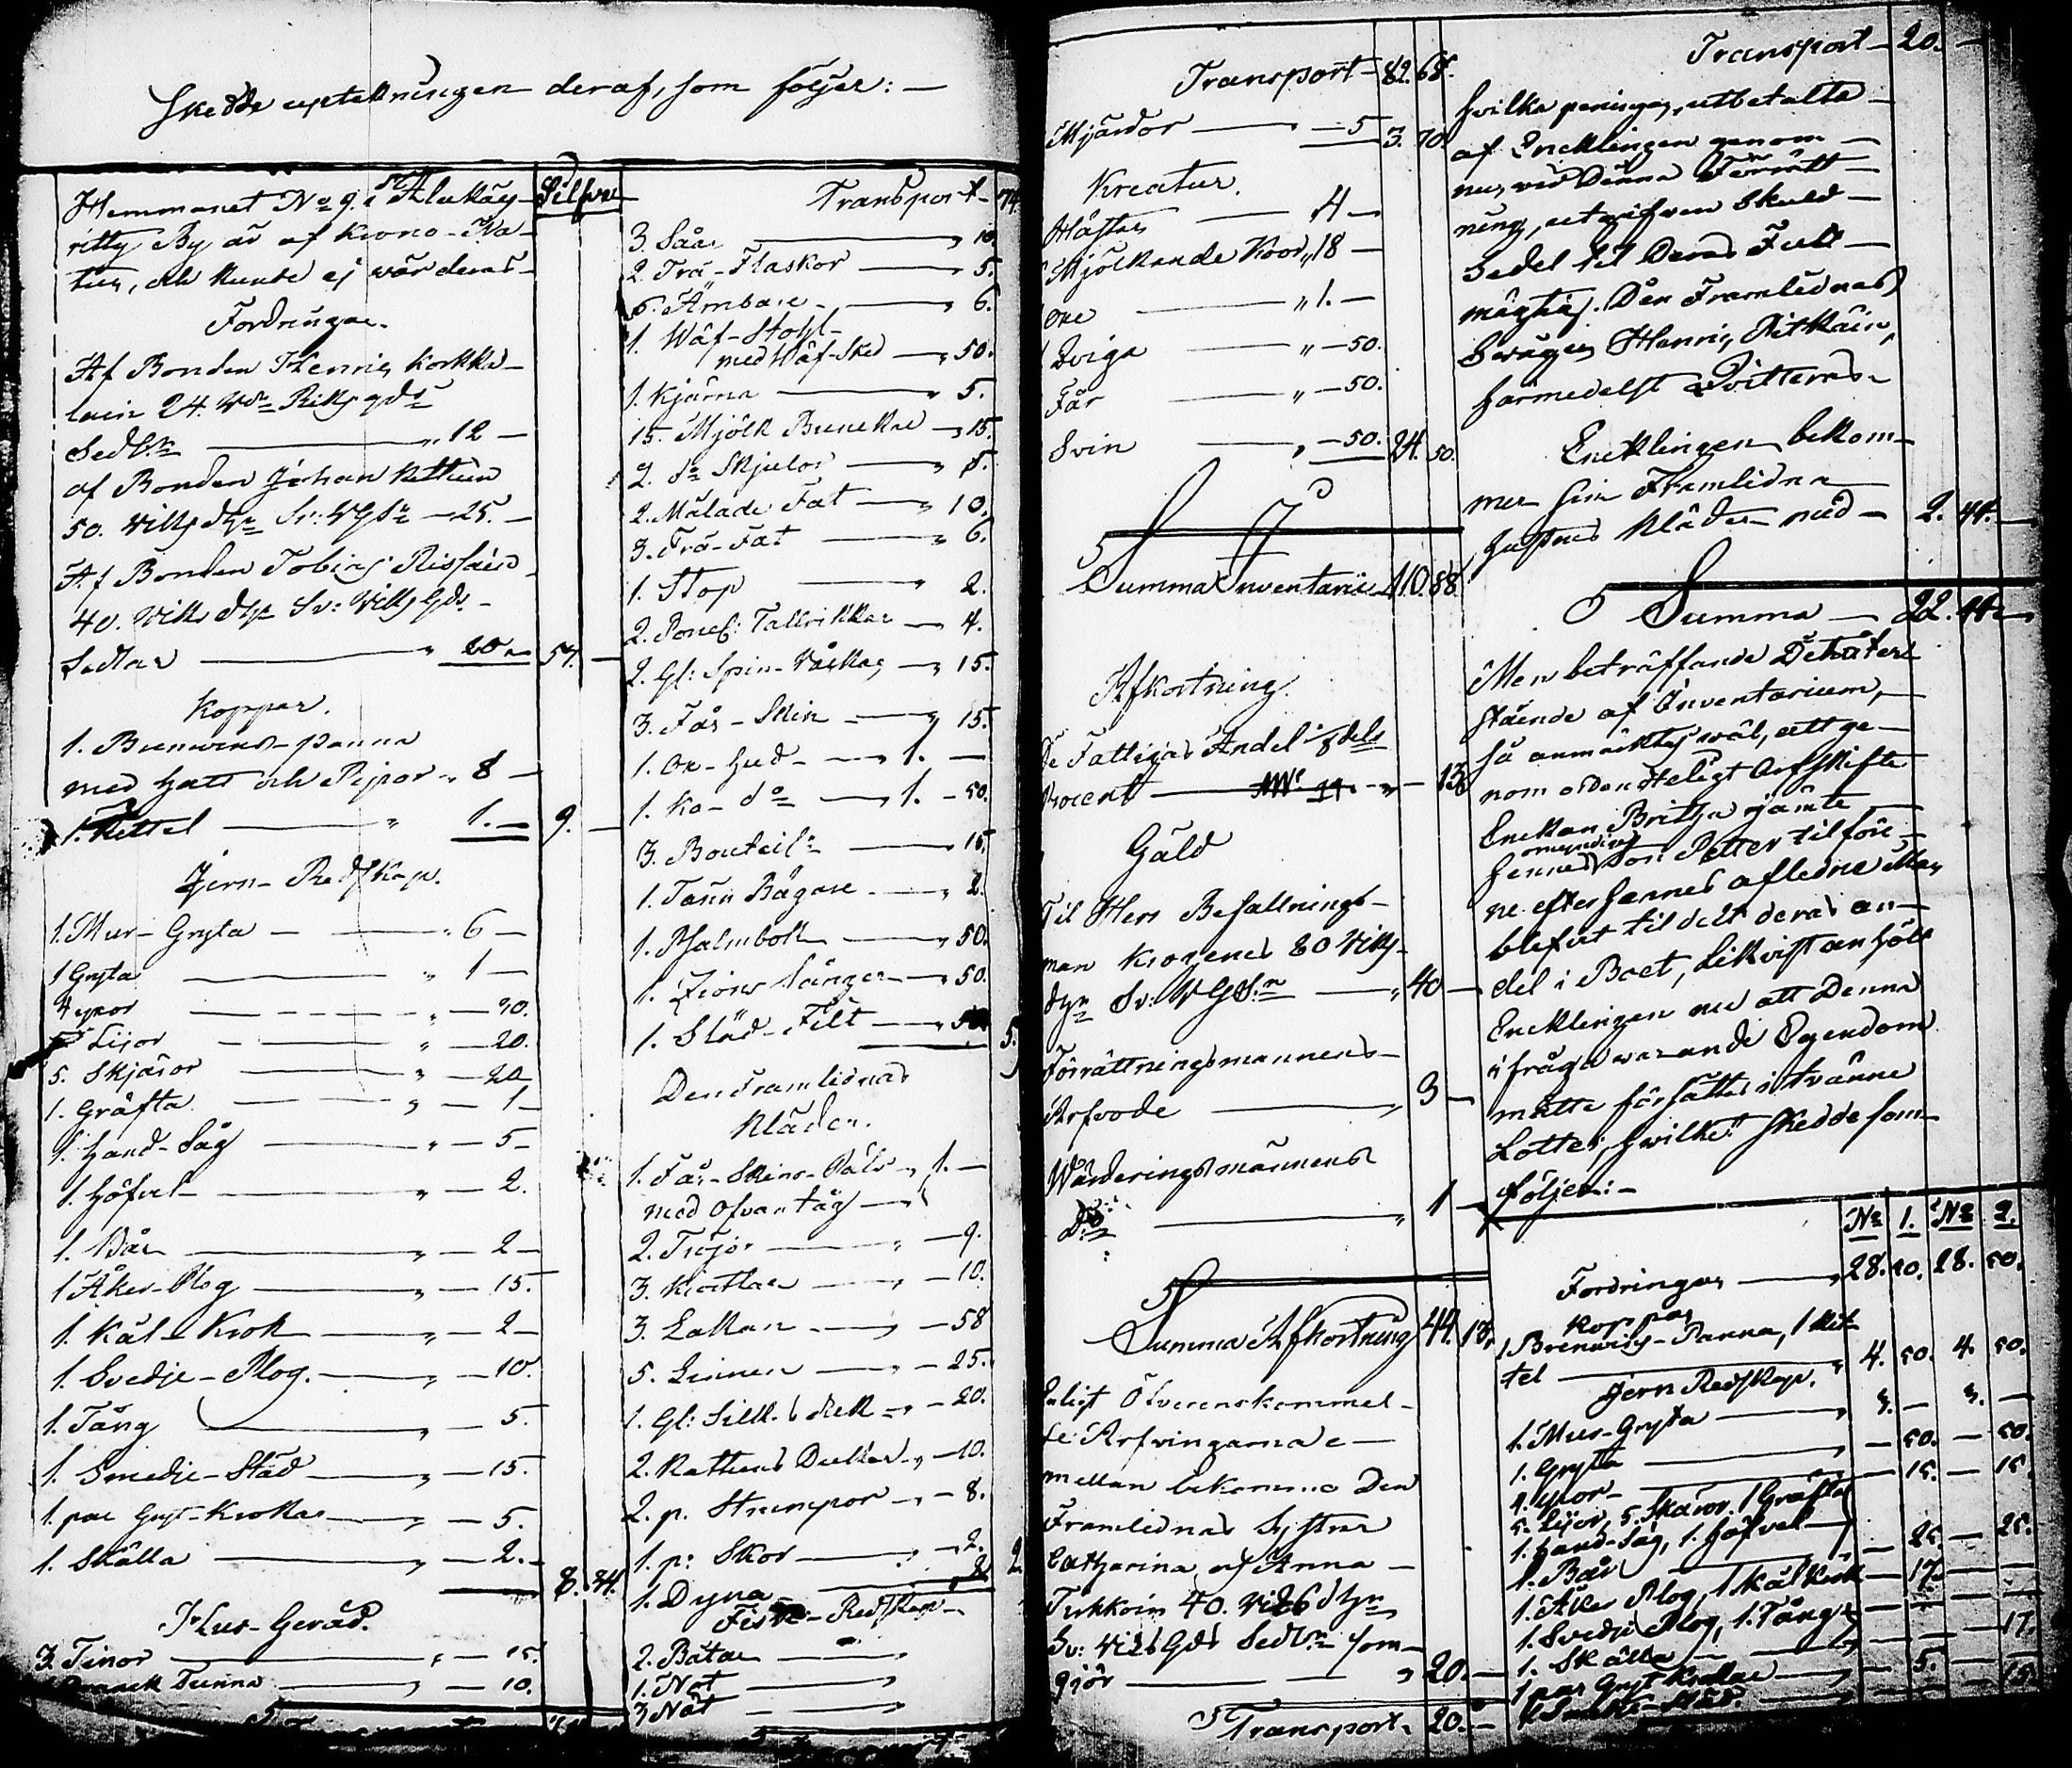 Skedde uptekningen deraf, som följer: —
Hemmanet No 9. i Alukäy- Silfver
ritty By är af Krono-Na-
tur, och kunde ej värderas
Fordringar.
Af Bonden Hennig Korkka-
lain 24. Rdr Riksgds
Sedlr — 12 —
af Bonden Johan
50. Sv: — 25. —
Af Bonden Tobias
40. Sv:
Sedlar — 20 — 57. —
Koppar.
1. Brenvins-panna
med hatt och Pipor — 8 —
1. Kittel — 1. — 9. —
Jern-Redskap.
1. Mur-Gryta — 6 —
1 Gryta — 1 —
4 yxor — 30.
5 Lijor — 20.
5. Skjäror — 20
1. Gräfta — 1 —
1. Hand-Såg — 5 —
1. Höfvel — 2.
1. Bår — 2 —
1 Åker-Plog — 15.
1. Kål-Krok — 2 —
1. Svedje-Plog. — 10.
1. Tång — 5.
1. Smedje-Städ — 15.
1. par Gryt-Krokar — 5.
1. Skälla — 2. — 8. 84.
Hus-Geråd.
3. Tinor — 15.
Tunna — 10.
Transport — 74.
3. Såar — 10
2. Trä-Flaskor — 5.
6. Ämbare — 6.
1. Wäf-Stohl
med Wäf-Sked — 50.
1. Kjärna — 5.
15. Mjölk Bunekar — 15.
2. do Skjulor — 8.
2. Målade Fat — 10.
3. Trä-Fat — 6.
1. Stop — 2.
2. Porcel: Tallrikkar — 4.
2. Gl: Spin- — 15.
3. Får-Skin — 15.
1. Ox-hud — 1. —
1. Ko-do — 1. — 50.
3. Bouteil: — 15.
1. Tenn Bägare — 2.
1. Psalmbok — 50.
1. Zions Sånger — 50.
1. Släd-Filt — 5.
Den Framlidnas
Kläder.
1. Får-Skins-Päls — 1. —
med ofvantåg —
2. Tröjor — 9.
3. Kjortlar — 10.
3. Lakan — 58
5. Linnen — 25.
1. Gl: Silk. — 20.
2. Kattuns Dukar — 10.
2. p. Strumpor — 8.
1. p: Skor — 2.
1. Dyna — 2
Fisk-Redskap
2. Båtar —
1. Not —
3 Nät —
Transport — 82. 68.
Mjärdor — 5 3. 70
Kreatur.
Hästar — 4 —
Mjölkande Koor, 18 —
Oxe — 1. —
Qviga — 50.
Får — 50.
Svin — 50. 24. 50.
Summa Inventarii 110. 88.
Afkortning.
De Fattigas Andel 1/8 dels
Procent — 13
Gäld
Til Herr Befallnings-
man Krogerus 80
Sv: — 40 —
Förrättningsmannens
Arfvode — 3 —
Wärderingsmännens
Do — 1 —
Summa Afkortning 44. 13.
Enligt Öfverenskommel-
se Arfvingarna e-
mellan bekomma Den
Framlidnas Systrar
Catharina och Anna
40.
Sv: Gds Sedlr som
gjör — 20. —
Transport. 20. —
Transport — 20. —
hvilka peningar utbetaltes
af Encklingen genom
nu, vid Denna Förrätt-
ning, utgifven Skuld-
Sedel til Deras Full-
mägtig, Den Framlidnas
Svåger Henric Pitkäin,
härmedelst Qvitteras.
Encklingen bekom-
mer sin Framlidna
hustrus Kläder med — 2. 44. —
Summa — 22. 44. —
Men beträffande Det öfver-
stående af Inventarium,
så anmärktes wäl, att ge-
nom ordenteligt Arfskifte
Enckan Britha jämte
hennes omyndige son Petter tilföre-
ne efter hennes aflidne Man
blefvit tildelt deras an-
del i Boet, Likvist anhölt
Encklingen nu att Denna
i fråga warande Egendom
måtte författas i tvänne
Lotter, hwilket skedde som
följer: —
No 1. No 2.
Fordringar — 28. 50. 28. 50.
Koppar
1 Brenvins-Panna, 1 Kit-
tel — 4. 50. 4. 50.
Jern Redskap.
1. Mur-Gryta — 3. — 3. —
1. Gryta — 50. — 50.
4. yxor — 15. — 15.
5. Lijor, 5. Skäror, 1 Gräfta
1. Hand-Såg, 1. Höfvel
1. Bår — 25. — 25.
1. Åker Plog, 1 Kål Krok — 17. —
1. Svedje Plog, 1. Tång
1. Skälla — 17.
1 par Gryt Krokar — 5. —
1 Smedje-Städ. — 15.